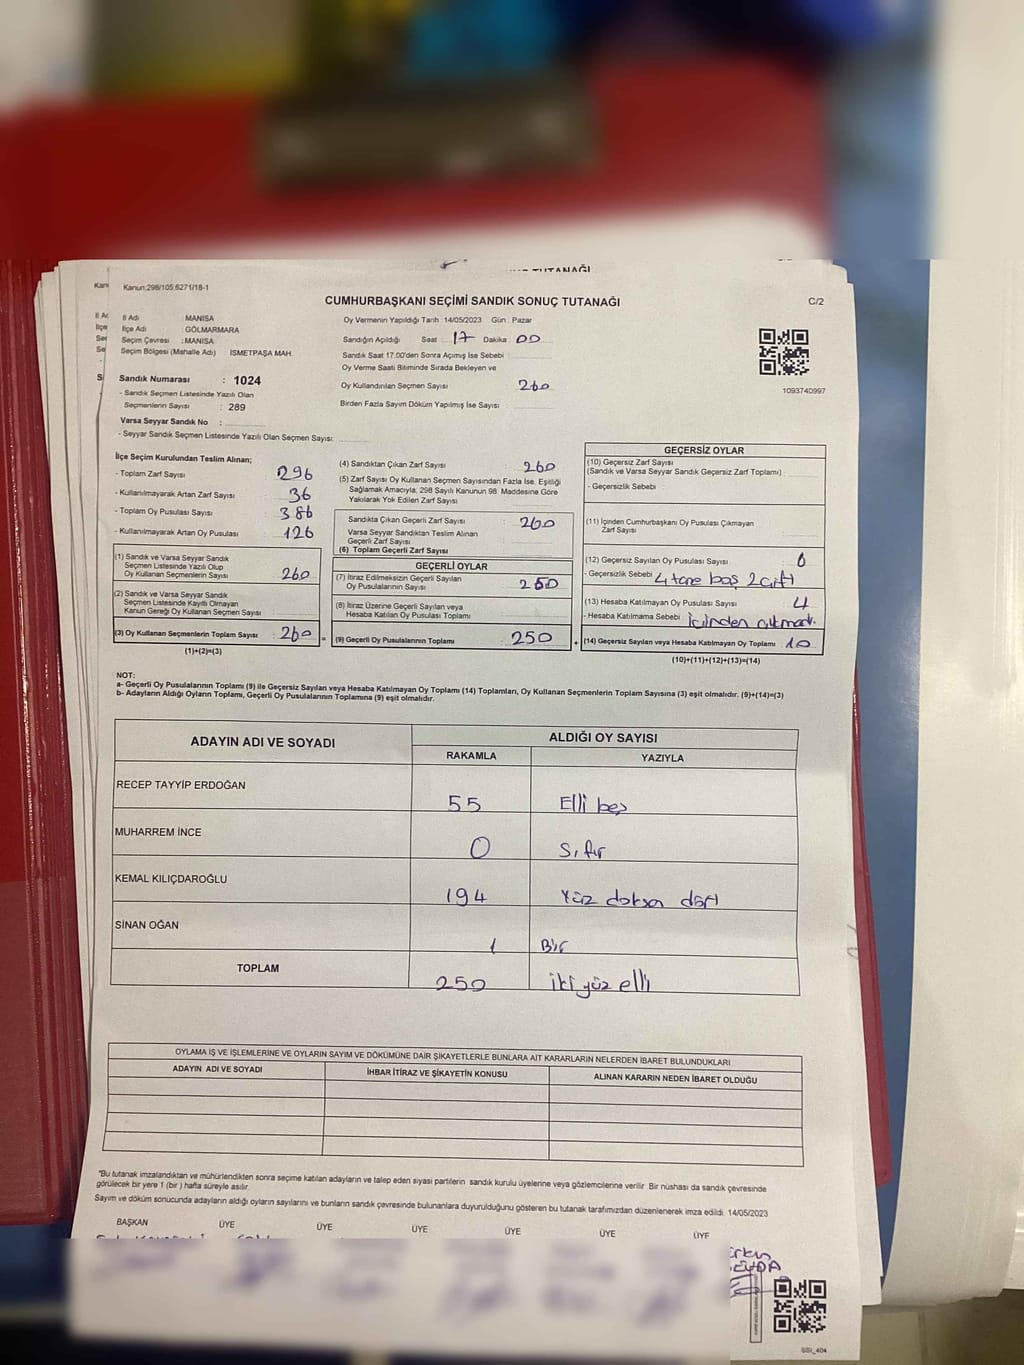 TUTANAĞI
Kanun:298/105,6271/18-1
CUMHURBAŞKANI SEÇİMİ SANDIK SONUÇ TUTANAĞI
C/2
İl Adı MANİSA
İlçe Adı GÖLMARMARA
Seçim Çevresi : MANİSA
Seçim Bölgesi (Mahalle Adı) İSMETPAŞA MAH.
Sandık Numarası : 1024
- Sandık Seçmen Listesinde Yazılı Olan
Seçmenlerin Sayısı : 289
Varsa Seyyar Sandık No :
- Seyyar Sandık Seçmen Listesinde Yazılı Olan Seçmen Sayısı:
Oy Vermenin Yapıldığı Tarih :14/05/2023 Gün : Pazar
Sandığın Açıldığı Saat 17 Dakika 00
Sandık Saat 17.00'den Sonra Açmış İse Sebebi
Oy Verme Saati Bitiminde Sırada Bekleyen ve
Oy Kullandırılan Seçmen Sayısı 260
Birden Fazla Sayım Döküm Yapılmış İse Sayısı
1093740997
İlçe Seçim Kurulundan Teslim Alınan;
- Toplam Zarf Sayısı 296
- Kullanılmayarak Artan Zarf Sayısı 36
- Toplam Oy Pusulası Sayısı 386
- Kullanılmayarak Artan Oy Pusulası 126
(1) Sandık ve Varsa Seyyar Sandık
Seçmen Listesinde Yazılı Olup
Oy Kullanan Seçmenlerin Sayısı 260
(2) Sandık ve Varsa Seyyar Sandık
Seçmen Listesinde Kayıtlı Olmayan
Kanun Gereği Oy Kullanan Seçmen Sayısı
(3) Oy Kullanan Seçmenlerin Toplam Sayısı 260 =
(1)+(2)=(3)
(4) Sandıktan Çıkan Zarf Sayısı 260
(5) Zarf Sayısı Oy Kullanan Seçmen Sayısından Fazla İse, Eşitliği
Sağlamak Amacıyla, 298 Sayılı Kanunun 98. Maddesine Göre
Yakılarak Yok Edilen Zarf Sayısı
Sandıkta Çıkan Geçerli Zarf Sayısı : 260
Varsa Seyyar Sandıktan Teslim Alınan
Geçerli Zarf Sayısı
(6) Toplam Geçerli Zarf Sayısı
GEÇERLİ OYLAR
(7) İtiraz Edilmeksizin Geçerli Sayılan
Oy Pusulalarının Sayısı 250
(8) İtiraz Üzerine Geçerli Sayılan veya
Hesaba Katılan Oy Pusulası Toplamı
(9) Geçerli Oy Pusulalarının Toplamı 250 +
GEÇERSİZ OYLAR
(10) Geçersiz Zarf Sayısı
(Sandık ve Varsa Seyyar Sandık Geçersiz Zarf Toplamı)
- Geçersizlik Sebebi
(11) İçinden Cumhurbaşkanı Oy Pusulası Çıkmayan
Zarf Sayısı
(12) Geçersiz Sayılan Oy Pusulası Sayısı 6
- Geçersizlik Sebebi 4 tane boş 2 çift
(13) Hesaba Katılmayan Oy Pusulası Sayısı 4
- Hesaba Katılmama Sebebi içinden çıkmadı.
(14) Geçersiz Sayılan veya Hesaba Katılmayan Oy Toplamı 10
(10)+(11)+(12)+(13)=(14)
NOT:
a- Geçerli Oy Pusulalarının Toplamı (9) ile Geçersiz Sayılan veya Hesaba Katılmayan Oy Toplamı (14) Toplamları, Oy Kullanan Seçmenlerin Toplam Sayısına (3) eşit olmalıdır. (9)+(14)=(3)
b- Adayların Aldığı Oyların Toplamı, Geçerli Oy Pusulalarının Toplamına (9) eşit olmalıdır.
ADAYIN ADI VE SOYADI ALDIĞI OY SAYISI
RAKAMLA YAZIYLA
RECEP TAYYİP ERDOĞAN 55 Elli beş
MUHARREM İNCE 0 Sıfır
KEMAL KILIÇDAROĞLU 194 Yüz doksan dört
SİNAN OĞAN 1 Bir
TOPLAM 250 iki yüz elli
OYLAMA İŞ VE İŞLEMLERİNE VE OYLARIN SAYIM VE DÖKÜMÜNE DAİR ŞİKAYETLERLE BUNLARA AİT KARARLARIN NELERDEN İBARET BULUNDUKLARI
ADAYIN ADI VE SOYADI İHBAR İTİRAZ VE ŞİKAYETİN KONUSU ALINAN KARARIN NEDEN İBARET OLDUĞU
"Bu tutanak imzalandıktan ve mühürlendikten sonra seçime katılan adayların ve talep eden siyasi partilerin sandık kurulu üyelerine veya gözlemcilerine verilir. Bir nüshası da sandık çevresinde
görülecek bir yere 1 (bir ) hafta süreyle asılır.
Sayım ve döküm sonucunda adayların aldığı oyların sayılarını ve bunların sandık çevresinde bulunanlara duyurulduğunu gösteren bu tutanak tarafımızdan düzenlenerek imza edildi. 14/05/2023
BAŞKAN ÜYE ÜYE ÜYE ÜYE ÜYE ÜYE
SSI_404